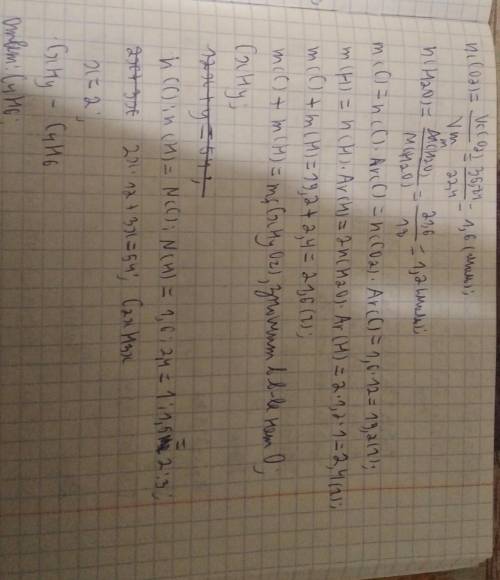 n(CO2) = V(CO2)/Vm = 35,84/22,4 = 1,6 (моль);
n(H2O) = m(H2O)/M(H2O) = 21,6/18 = 1,2 (моль);
m(C) = n(C) · Ar(C) = n(CO2) · Ar(C) = 1,6 · 12 = 19,2 (г);
m(H) = n(H) · Ar(H) = 2n(H2O) · Ar(H) = 2 · 1,2 · 1 = 2,4 (г);
m(C) + m(H) = 19,2 + 2,4 = 21,6 (г);
m(C) + m(H) = m(CxHyOz), значит в в-ве нет O;
CxHy;
12x + y = 54;
n(C) : n(H) = N(C) : N(H) = 1,6 : 2,4 = 1 : 1,5 = 2 : 3;
2x + 3x 2x · 12 + 3x = 54; C2xH3x
x = 2;
CxHy – C4H6
Ответ: C4H6;